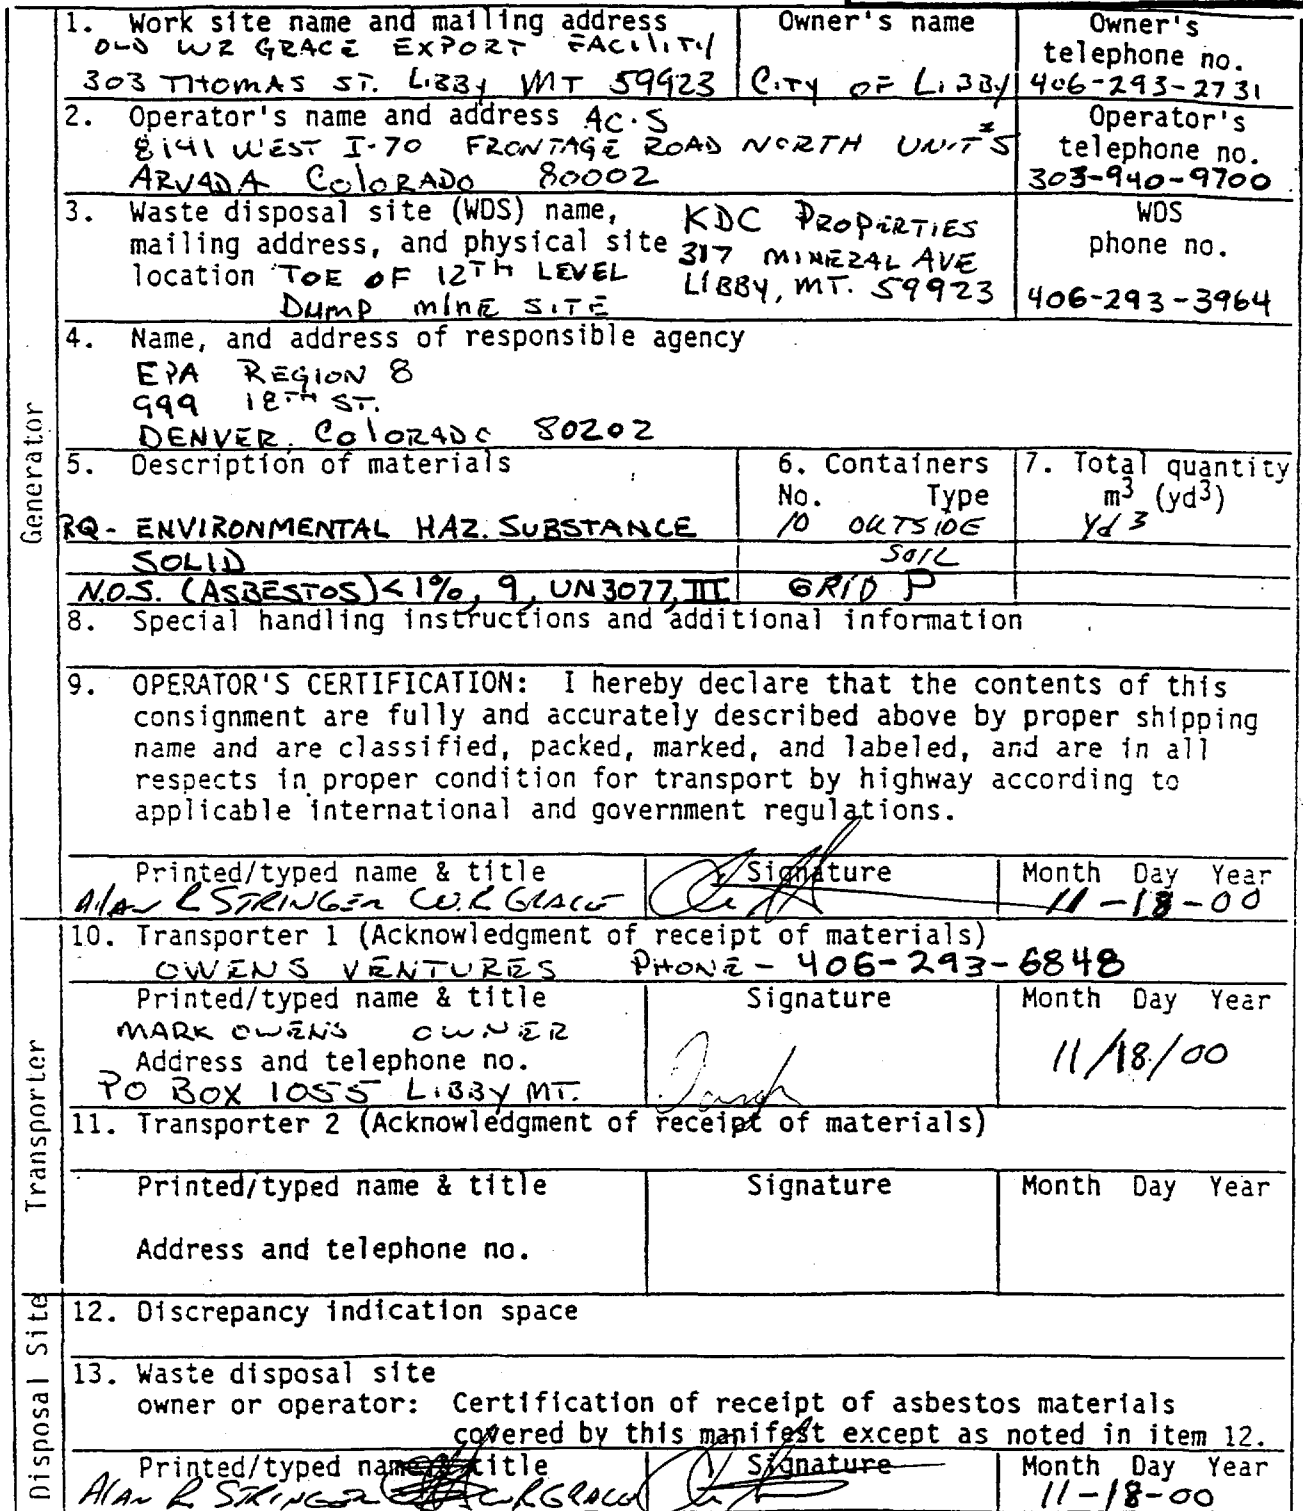 Generator
1. Work site name and mailing address
OLD WR GRACE EXPORT FACILITY
303 THOMAS ST. LIBBY MT 59923
Owner's name
CITY OF LIBBY
Owner's
telephone no.
406-293-2731
2. Operator's name and address AC·S
8141 WEST I-70 FRONTAGE ROAD NORTH UNIT #5
ARVADA COLORADO 80002
Operator's
telephone no.
303-940-9700
3. Waste disposal site (WDS) name,
mailing address, and physical site
location TOE OF 12TH LEVEL
DUMP MINE SITE
KDC PROPERTIES
317 MINERAL AVE
LIBBY, MT. 59923
WDS
phone no.
406-293-3964
4. Name, and address of responsible agency
EPA REGION 8
999 18TH ST.
DENVER, COLORADO 80202
5. Description of materials
6. Containers
No. Type
7. Total quantity
m3 (yd3)
RQ- ENVIRONMENTAL HAZ. SUBSTANCE
10 OUTSIDE
Yd 3
SOLID
SOIL
N.O.S. (ASBESTOS)<1%, 9, UN3077, III
GRID P
8. Special handling instructions and additional information
9. OPERATOR'S CERTIFICATION: I hereby declare that the contents of this
consignment are fully and accurately described above by proper shipping
name and are classified, packed, marked, and labeled, and are in all
respects in proper condition for transport by highway according to
applicable international and government regulations.
Printed/typed name & title
Alan R STRINGER W.R GRACE
Signature
Month Day Year
11-18-00
Transporter
10. Transporter 1 (Acknowledgment of receipt of materials)
OWENS VENTURES PHONE- 406-293-6848
Printed/typed name & title
MARK OWENS OWNER
Address and telephone no.
PO BOX 1055 LIBBY MT.
Signature
Month Day Year
11/18/00
11. Transporter 2 (Acknowledgment of receipt of materials)
Printed/typed name & title
Signature
Month Day Year
Address and telephone no.
Disposal Site
12. Discrepancy indication space
13. Waste disposal site
owner or operator: Certification of receipt of asbestos materials
covered by this manifest except as noted in item 12.
Printed/typed name & title
Alan R STRINGER W.R GRACE
Signature
Month Day Year
11-18-00